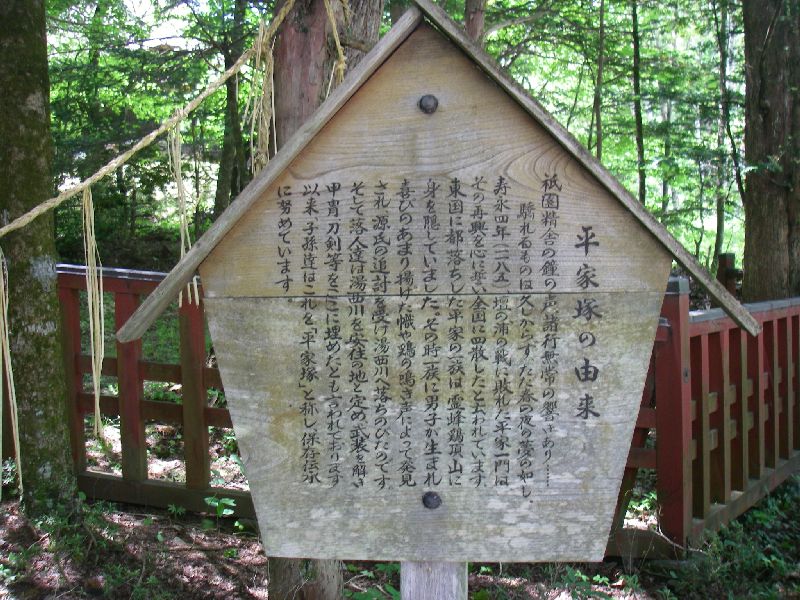 平家塚の由来
祇園精舎の鐘の声、諸行無常の響きあり……
驕れるものは久しからず、ただ春の夜の夢の如し、
寿永四年(一一八五)壇の浦の戦に敗れた平家一門は
その再興を心に誓い全国に四散したと云われています。
東国に都落ちした平家の一族は霊峰鶏頂山に
身を隠していました。その時一族に男子が生まれ
喜びのあまり揚げた幟や鶏の鳴き声によって発見
され、源氏の追討を受け湯西川へ落ちのびたのです
そして落人達は湯西川を安住の地と定め、武装を解き
甲冑、刀剣等をここに埋めたとも言われております
以来、子孫達はこれを「平家塚」と称し保存伝承
に努めています。